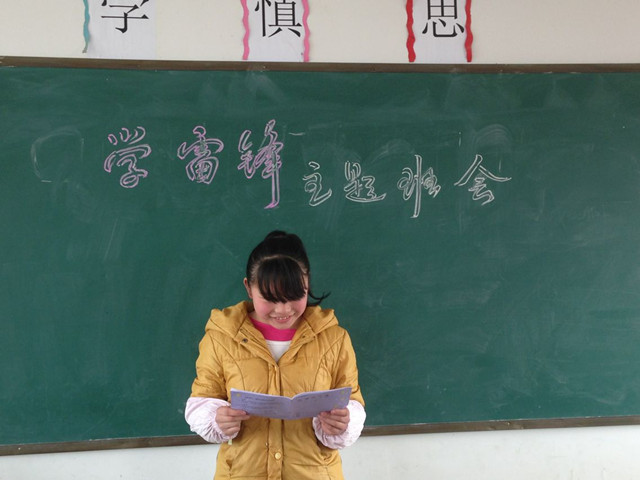 学 慎 思
学雷锋主题班会